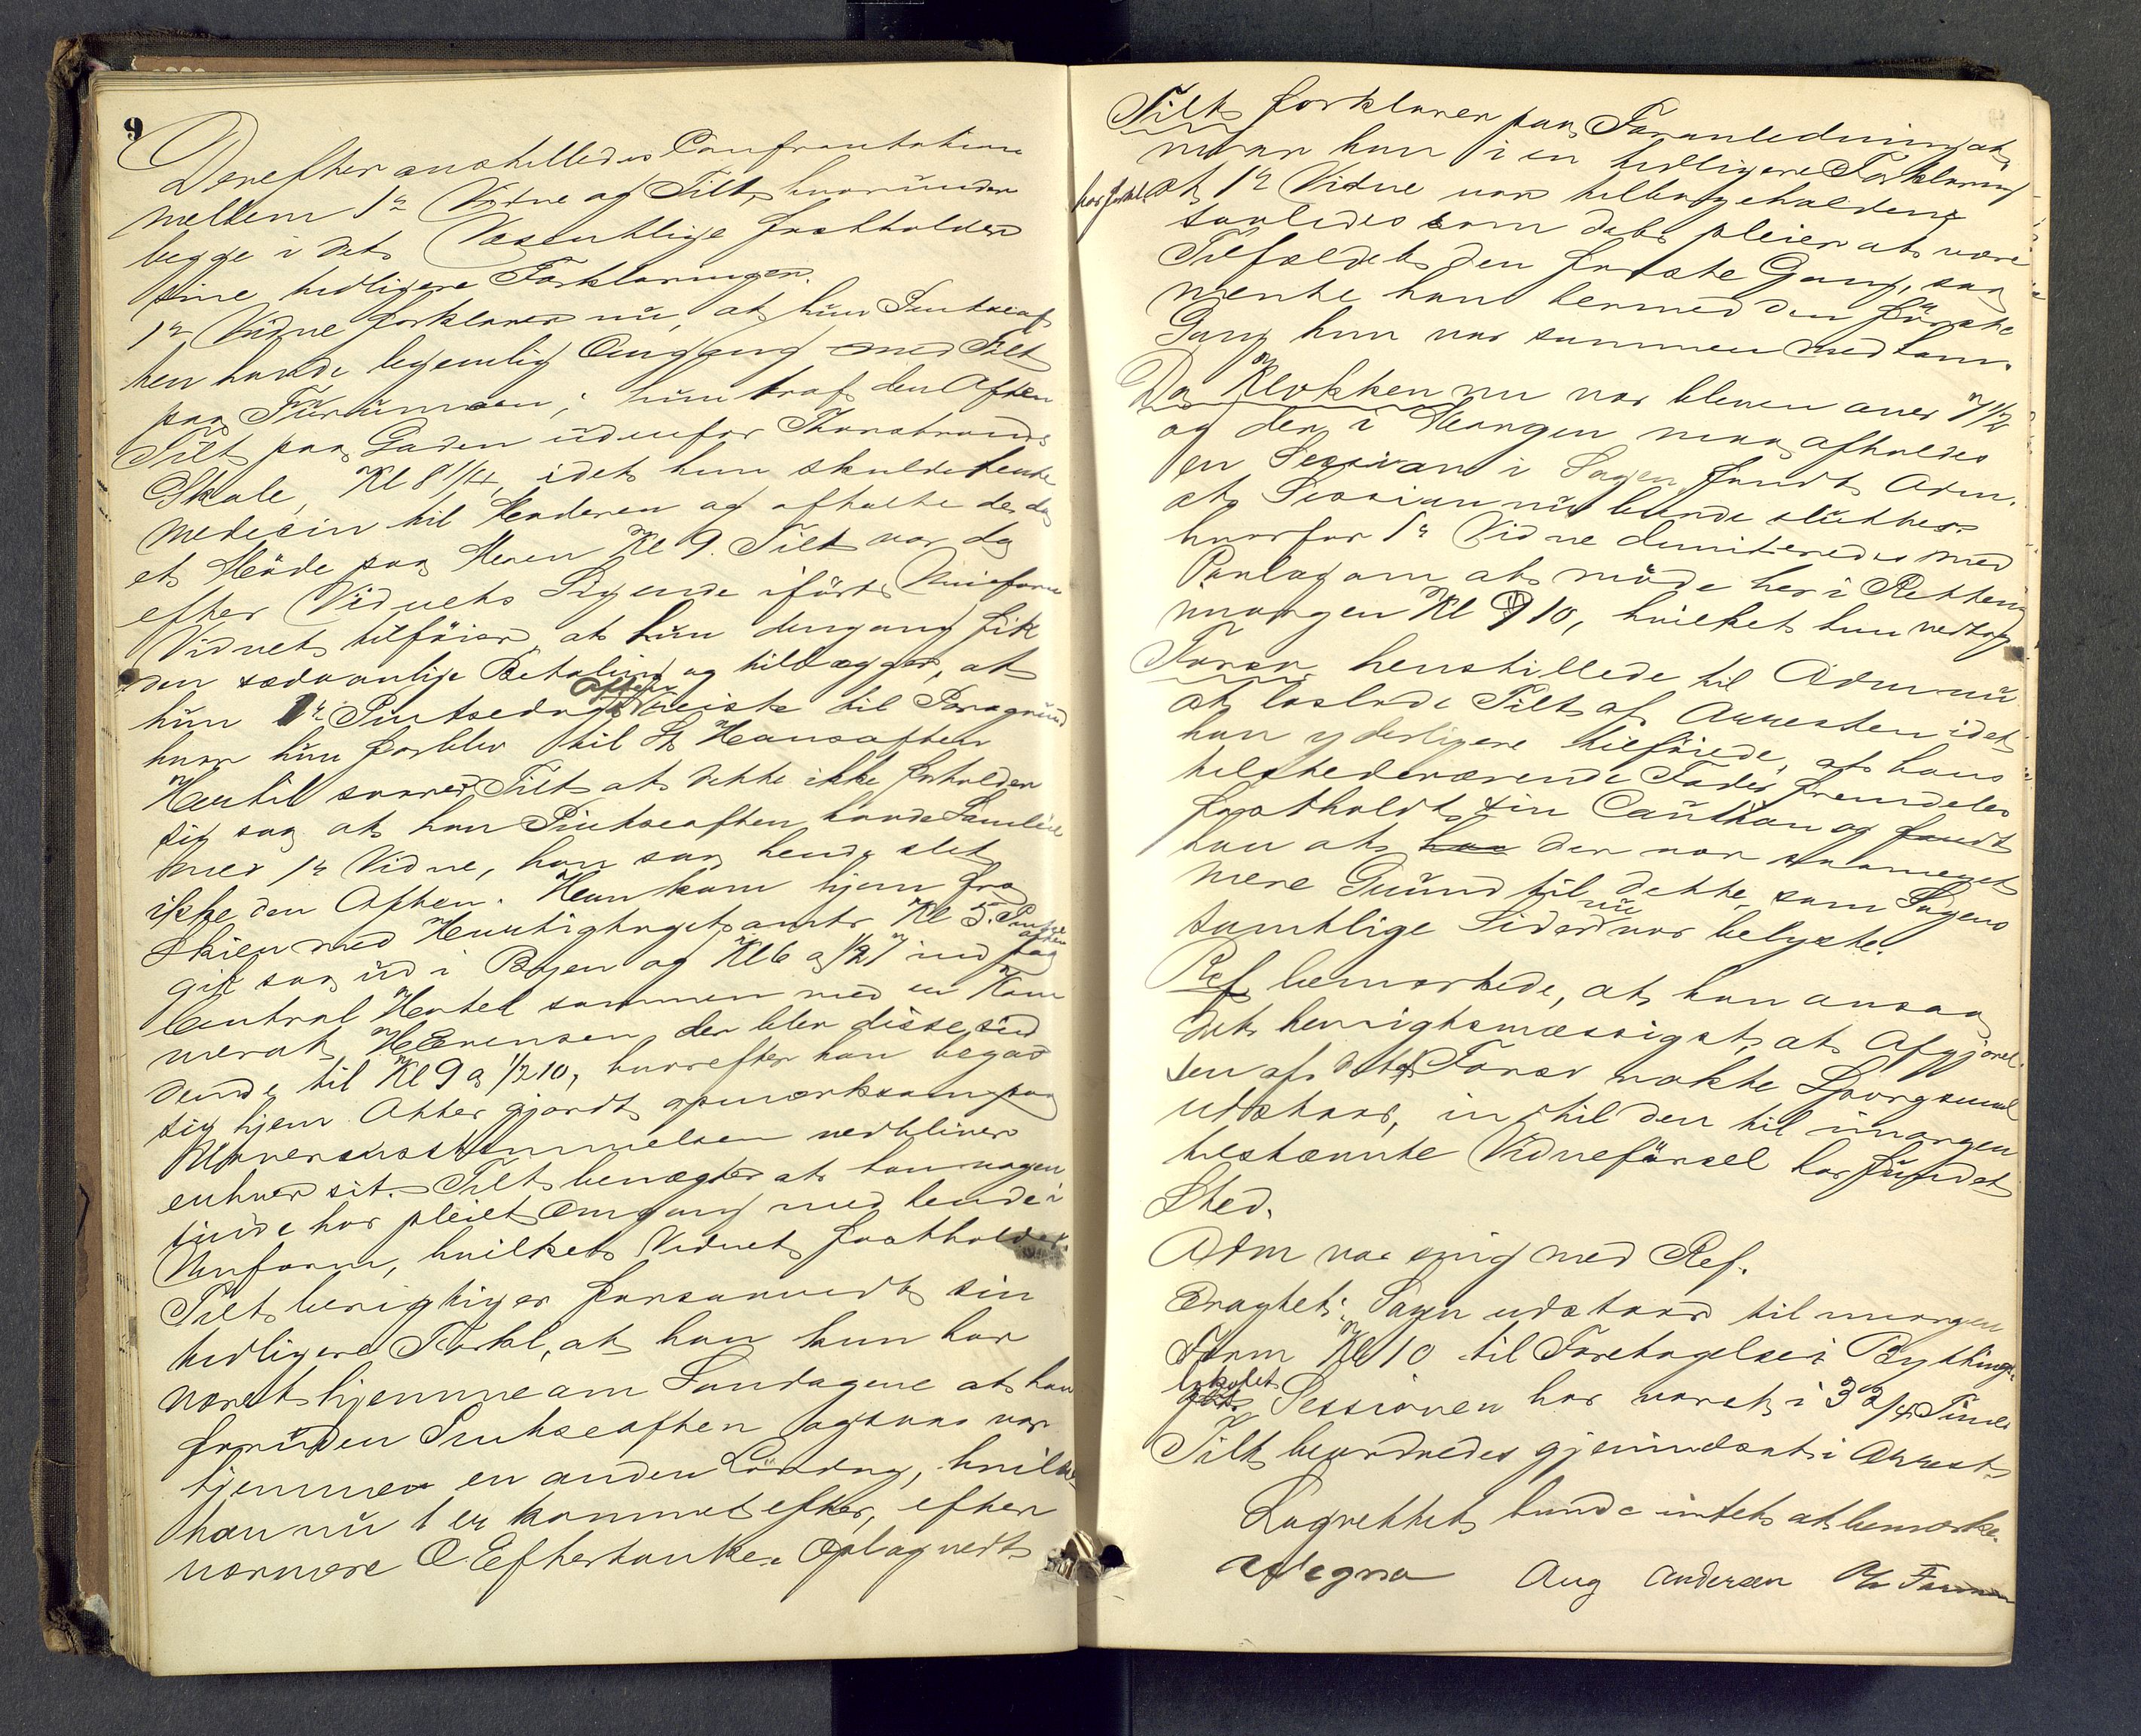 9
Derefter anstilledes Confrontation
mellem 1ste Vidne og Tilt, hvorunder
begge i det Væsentlige fastholder
sine tidligere Forklaringer.
1ste Vidne forklarer nu, at hun Pintseaf
ten havde legemlig Omgang med Tilt
paa ; hun traf den Aften
Tilt paa Gaden udenfor
Skole, Kl 8 1/4, idet hun skulde hente
Medecin til Moderen og aftalte de da
et Möde paa Kl 9. Tilt var da
efter Vidnets Sigende iført Uniform
Vidnet tilföier, at hun dengang fik
den sædvanlige Betaling og tillægger, at
hun 1ste Pintsedags Aften reiste til Porsgrund
hvor hun forblev til St Hansaften
Hertil svarer Tilt at dette ikke forholder
sig saa at han Pintseaften havde Samleie
med 1ste Vidne, han saa hende slet
ikke den Aften. Han kom hjem fra
Skien med Hurtigtoget omtr Kl 5. Pintseaften
gik saa ud i Byen og Kl 6 a 1/2 7 ind paa
Central Hotel sammen med en Kam
merat H Evensen, der blev disse sid
dende til Kl 9 a 1/2 10, hvorefter han begav
sig hjem. Atter gjordt opmærksom paa
Uoverensstemmelsen vedbliver
enhver sit. Tilt benægter at han nogen
sinde har pleiet Omgang med hende i
Uniform, hvilket Vidnet fastholder.
Tilt berigtiger forsaavidt sin
tidligere Forkl, at han kun har
været hjemme om Søndagene at han
foruden Pintseaften ogsaa var
hjemme en anden Lördag, hvilket
han nu er kommet efter, efter
nærmere Eftertanke. Oplæst vedt
Tilt forklarer paa Foranledning at
naar han i en tidligere Forklaring
har forkl. at 1ste Vidne var tilbageholdende
saaledes som det pleier at være
Tilfældet den første Gang, saa
mente han dermed den første
Gang hun var sammen med ham.
Da Klokken nu var bleven over 7 1/2
og der i Morgen maa afholdes
en Session i Sagen fandt Adm.
at Sessionen nu burde sluttes
hvorfor 1ste Vidne dimiteredes med
Paalæg om at møde her i Retten
imorgen Kl 10, hvilket hun vedtog
Forsv henstillede til Adm nu
at løslade Tilt af Arresten idet
han yderligere tilföiede, at hans
tilstedeværende Fader fremdeles
fastholdt sin Caution og fandt
han at der var saameget
mere Grund til dette, som Sagens
samtlige Sider nu var belyste.
Ref. bemærkede, at han ansaa
det hensigtsmæssigst, at Afgjörel
sen af det af Forsv vakte Spørgsmaal
udstaar, indtil den til imorgen
bestemte Vidneførsel har fundet
Sted.
Adm var enig med Ref.
Eragtet: Sagen udstaar til morgen
Form Kl 10 til Foretagelse i Bythings
lokalet Sessionen har varet i 3 3/4 Time
Tilt beordredes gjenindsat i Arrest
Lagrettet havde intet at bemærke.
Aug Andersen